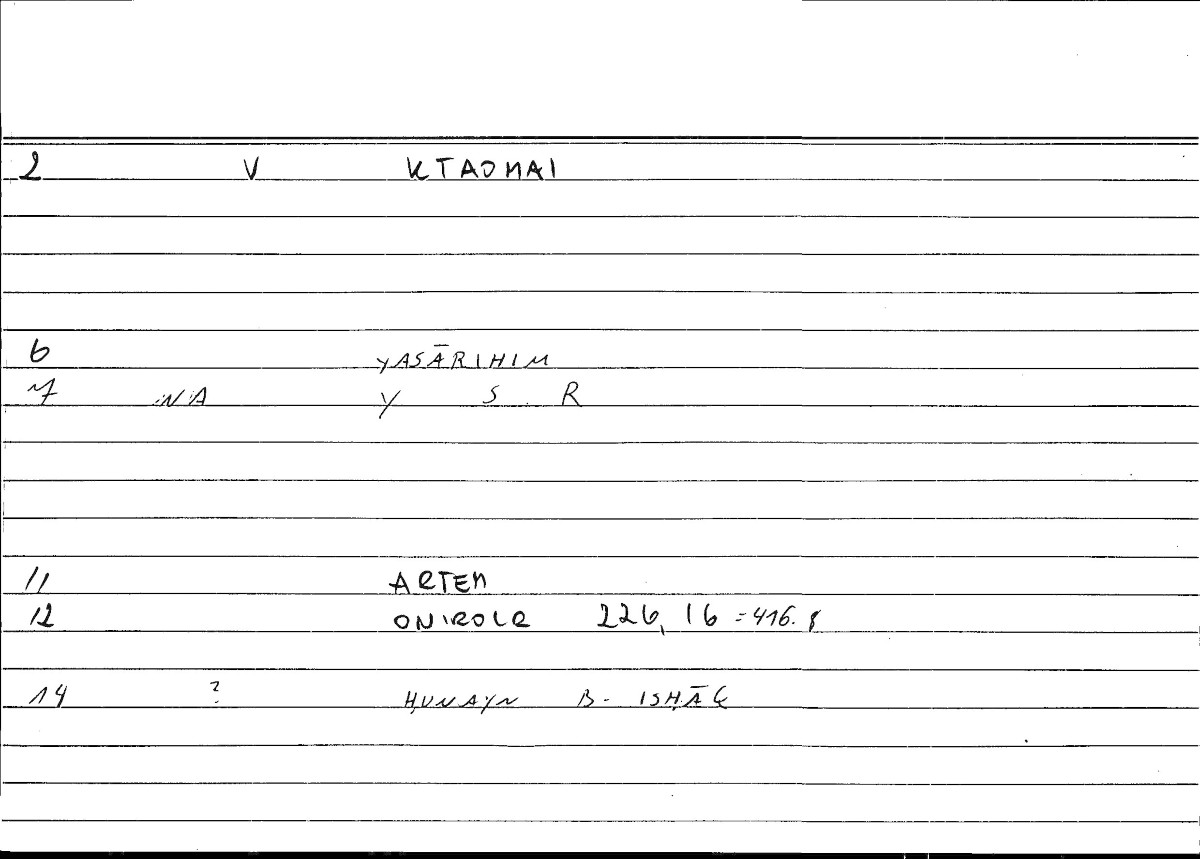 2 V KTAOMAI
6 YASĀRIHIM
7 NA Y S R
11 ARTEM
12 ONIROCR 226, 16 = 416. 8
14 ? ḤUNAYN B. ISḤĀQ